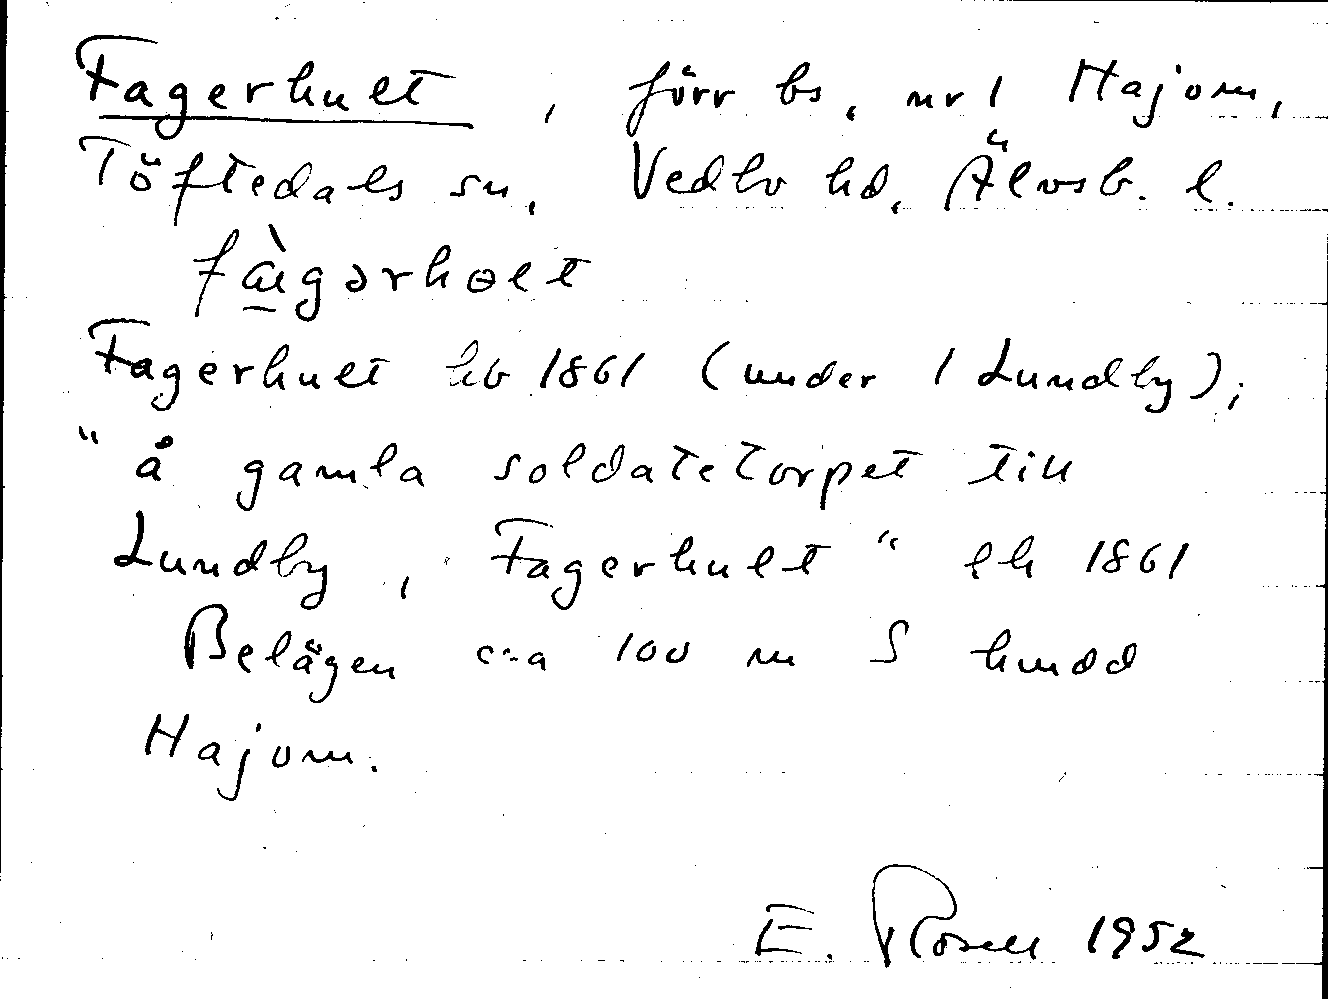 Fagerhult, förr bs, nr 1 Hajom,
Töftedals sn, Vedbo hd, Älvsb. l.
fàgərhɵlt
Fagerhult hb 1861 (under 1 Lundby);
"å gamla soldatetorpet till
Lundby, Fagerhult" lh 1861
Belägen c:a 100 m S hmdd
Hajom.
E. Rosell 1952